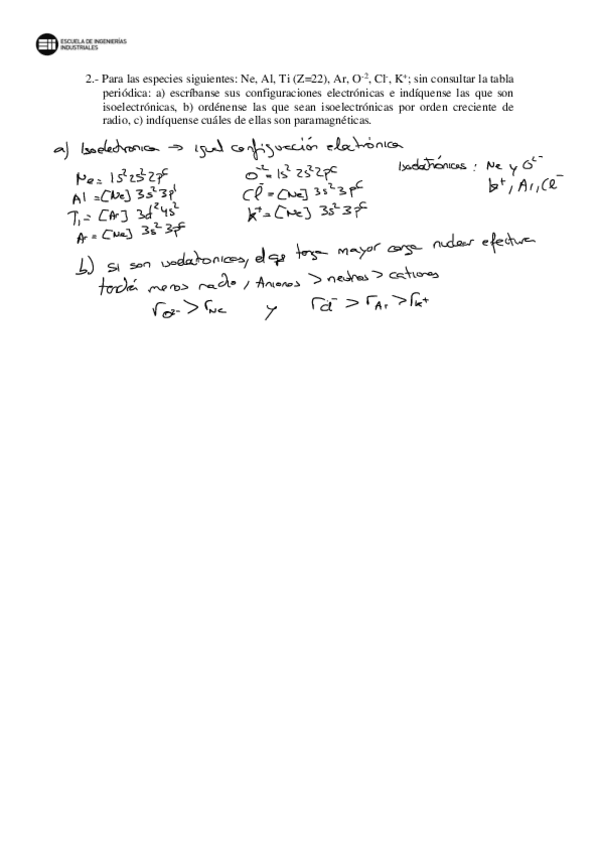 ESCUELA DE INGENIERÍAS
INDUSTRIALES
2.- Para las especies siguientes: Ne, Al, Ti (Z=22), Ar, O⁻², Cl⁻, K⁺; sin consultar la tabla
periódica: a) escríbanse sus configuraciones electrónicas e indíquense las que son
isoelectrónicas, b) ordénense las que sean isoelectrónicas por orden creciente de
radio, c) indíquense cuáles de ellas son paramagnéticas.
a) Isoelectronica → igual configuración electrónica
Ne = 1s² 2s² 2p⁶
Al = [Ne] 3s² 3p¹
Ti = [Ar] 3d² 4s²
Ar = [Ne] 3s² 3p⁶
O⁻² = 1s² 2s² 2p⁶
Cl⁻ = [Ne] 3s² 3p⁶
K⁺ = [Ne] 3s² 3p⁶
Isoelectrónicas : Ne y O²⁻
K⁺, Ar, Cl⁻
b) Si son isoelectronicas, el que tenga mayor carga nuclear efectiva
tendrá menos radio, Aniones > neutros > cationes
r O²⁻ > r Ne y r Cl⁻ > r Ar > r K⁺